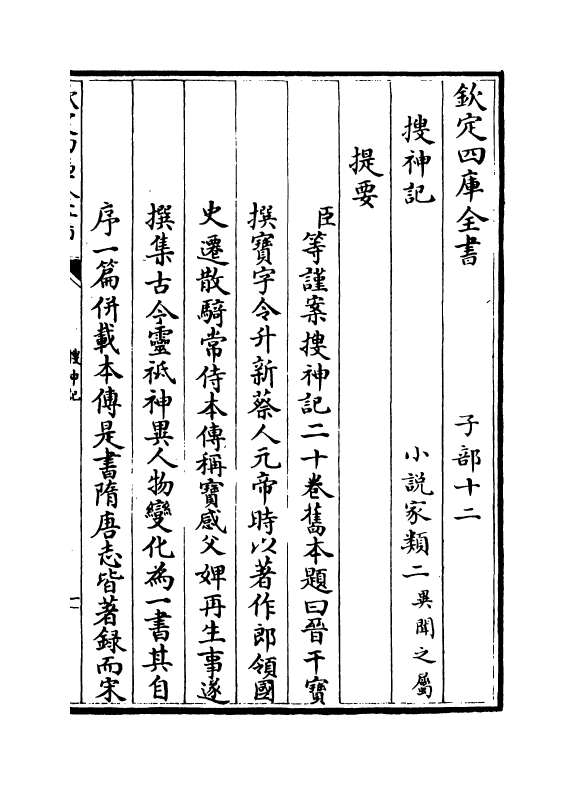 欽定四庫全書　子部十二
搜神記　小説家類二異聞之屬
提要
臣等謹案搜神記二十卷舊本題曰晉干寶
撰寳字令升新蔡人元帝時以著作郎領國
史遷散騎常侍本傳稱寳感父婢再生事遂
撰集古今靈祇神異人物變化為一書其自
序一篇併載本傳是書隋唐志皆著録而宋
搜神記
一